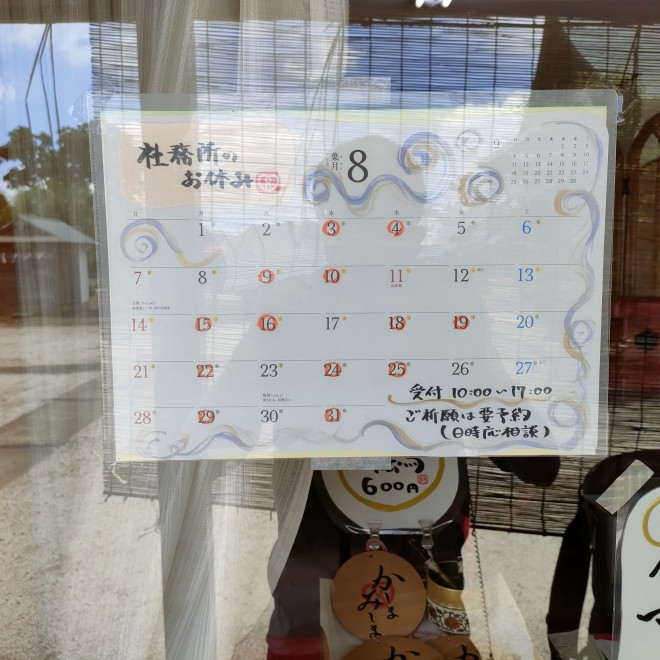 社務所の
お休み
葉月
8
9
日 月 火 水 木 金 土
1 2 3 4 5 6
7 8 9 10 11 12 13
14 15 16 17 18 19 20
21 22 23 24 25 26 27
28 29 30 31
受付 10:00~17:00
ご祈願は要予約
(日時応相談)
600円
かしま
みしま
か
マ